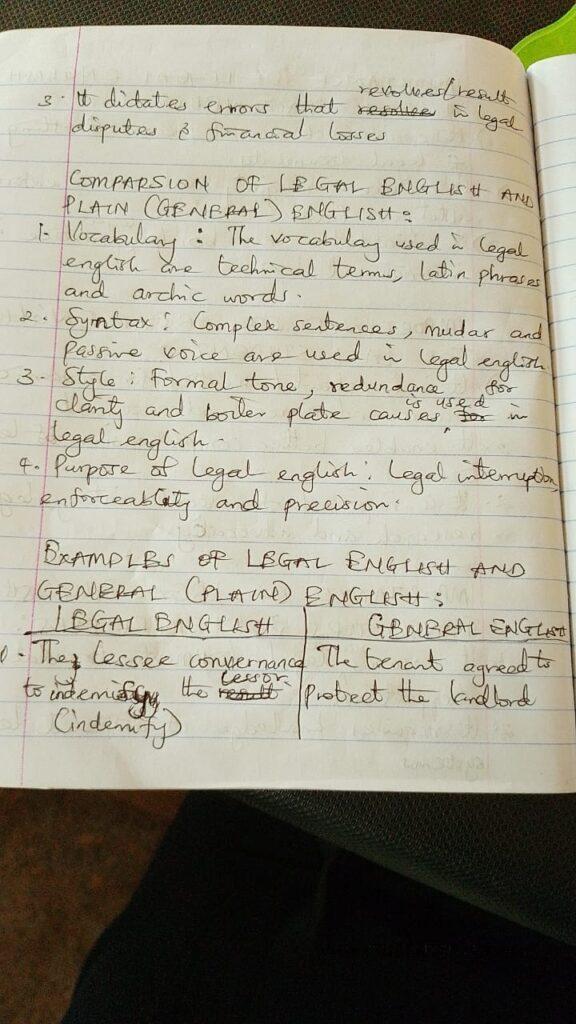 revolves/result
3. It dictates errors that resolves in legal
disputes & financial losses
COMPARSION OF LEGAL ENGLISH AND
PLAIN (GENERAL) ENGLISH:
1. Vocabulary: The vocabulay used in legal
english are technical terms, latin phrases
and archic words.
2. Syntax: Complex sentences, mudar and
Passive voice are used in legal english
3. Style: Formal tone, redundance for
clarity and boiler plate causes is used for in
legal english.
4. Purpose of legal english: legal interruption,
enforceability and precision.
EXAMPLES OF LEGAL ENGLISH AND
GENERAL (PLAIN) ENGLISH:
LEGAL ENGLISH GENERAL ENGLISH
The lessee convernance The tenant agreed to
to the lessor result protect the landlord
(indemnify)